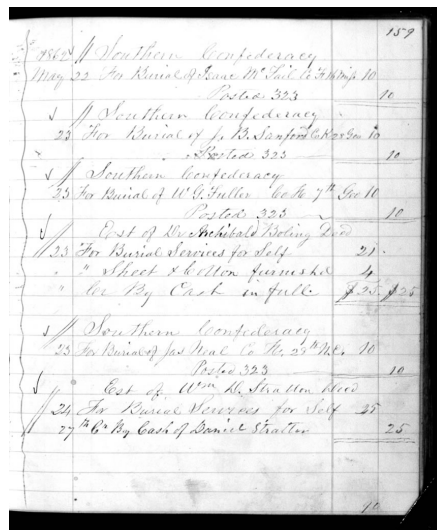 159
1862 // Southern Confederacy
May 22 For Burial of Isaac Mc Co F 16 Miss 10
Posted 323 10
// Southern Confederacy
23 For Burial of J. B. Sanford Co K 28 Geo 10
Posted 323 10
// Southern Confederacy
23 For Burial of W G Fuller Co K 7th Geo 10
Posted 323 10
// Est of Dr Archibald Boling Decd
23 For Burial Services for Self 21
" " Sheet & Cotton furnished 4
" Cr By Cash in full $25 $25
// Southern Confederacy
23 For Burial of Jas Neal Co 23th N.C. 10
Posted 323 10
Est of Wm D. Stratton Decd
// 24 For Burial Services for Self 25
27th Cr By Cash of Daniel Stratton 25
10